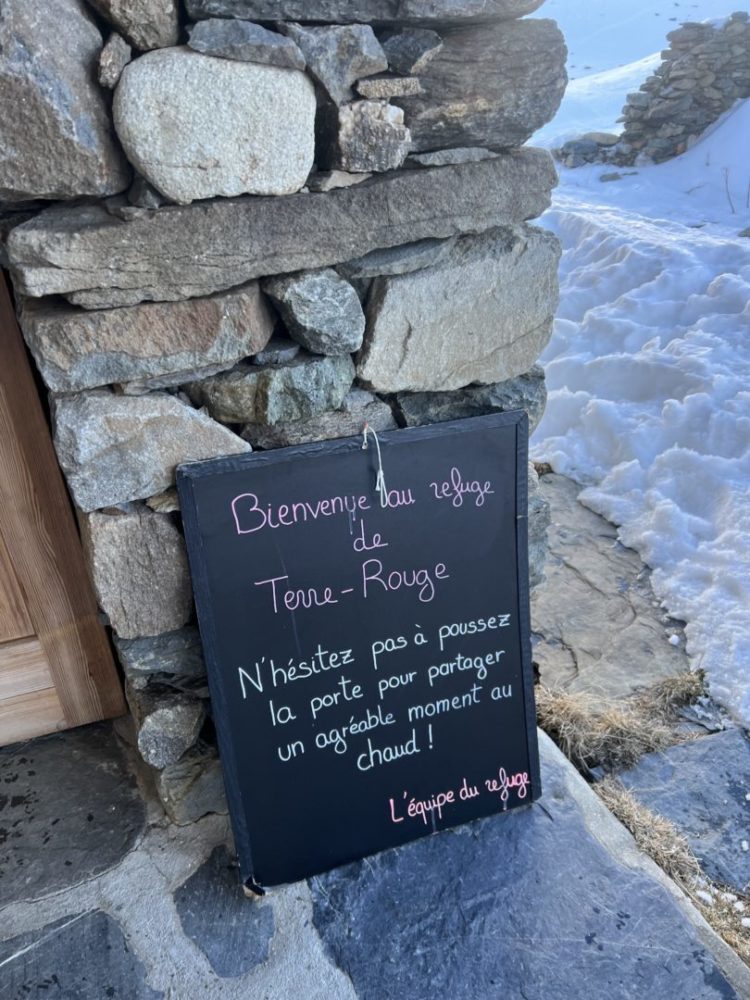 Bienvenue au refuge
de
Terre-Rouge
N'hésitez pas à poussez
la porte pour partager
un agréable moment au
chaud !
L'équipe du refuge